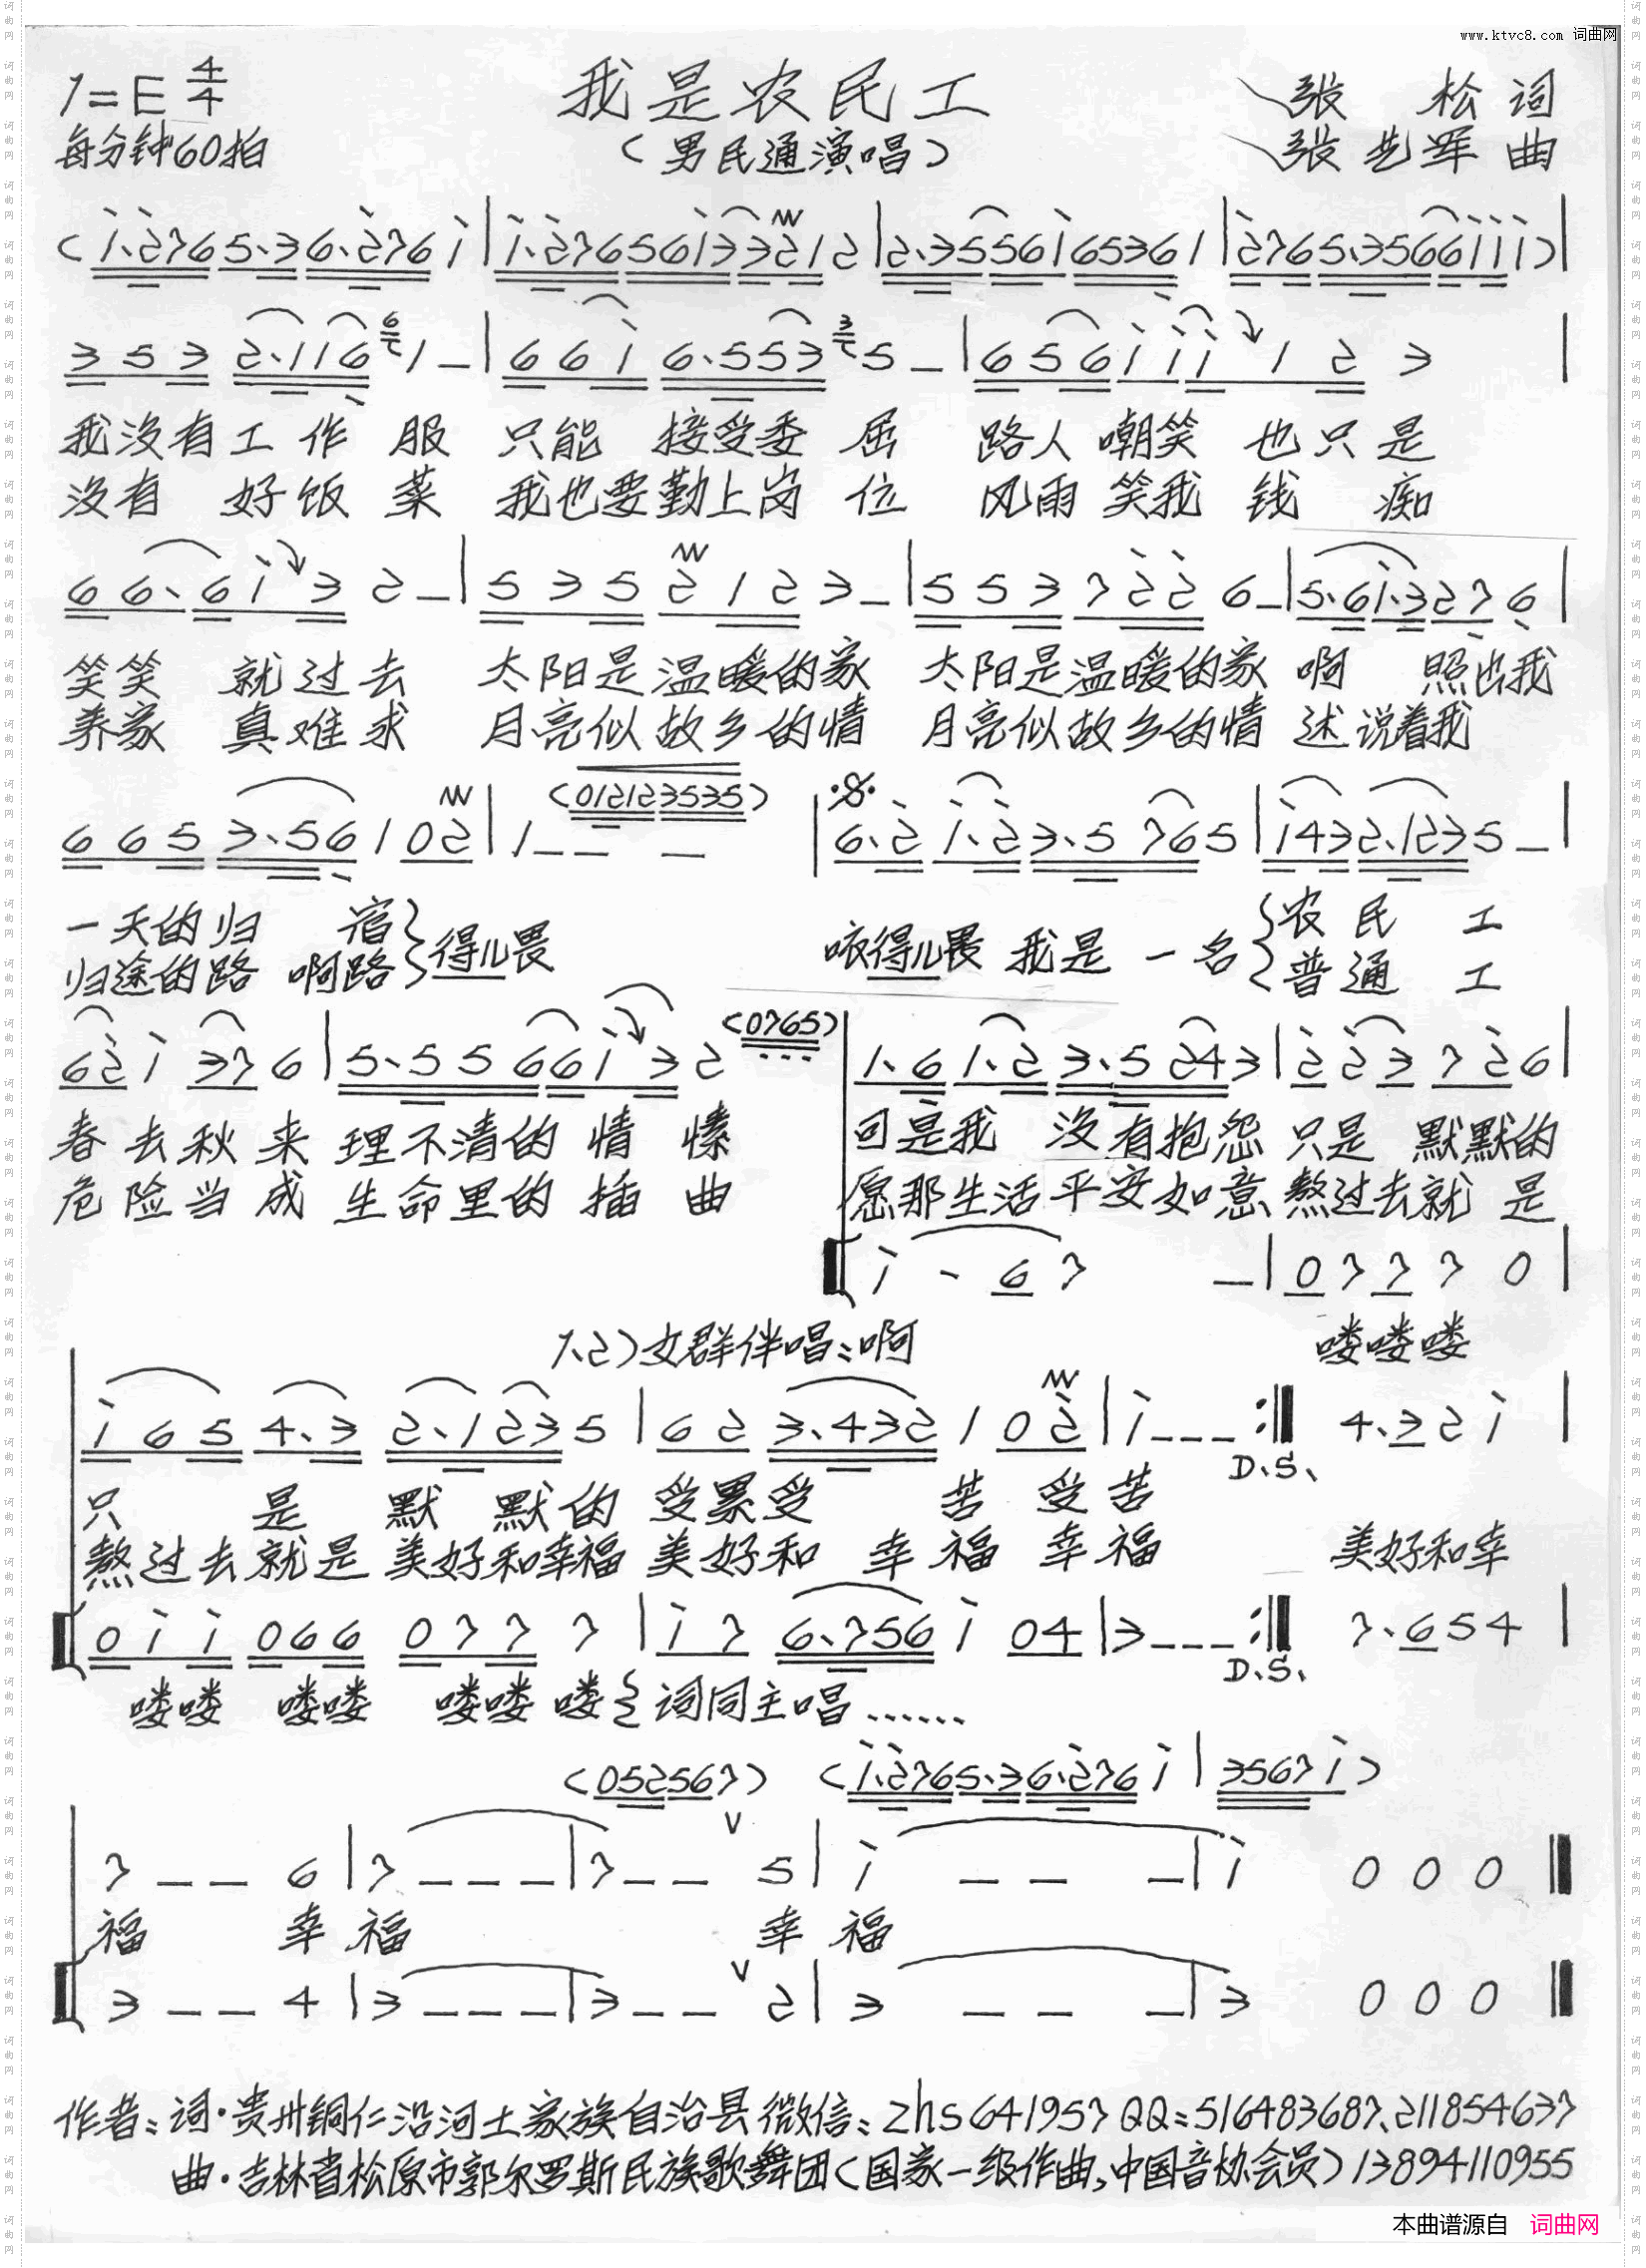 www.ktvc8.com 词曲网
1=E 4/4 我是农民工 张 松 词
每分钟60拍 (男民通演唱) 张先军 曲
(1.2765.36.2761|1.27656133212|2.3556165361|2765.3566111)|
353 2.116 6 1 –|661 6.553 3 5 –|656111 1 2 3 |
我没有工作 服 只能 接受委 屈 路人嘲笑 也只是
没有 好饭 菜 我也要勤上岗 位 风雨笑我 钱 痴
66.61 3 2 –|535 2 1 2 3 –|553 7 2 2 6 –|5.61.3276|
笑笑 就过去 太阳是温暖的家 太阳是温暖的家 啊 照也我
养家 真难求 月亮似故乡的情 月亮似故乡的情 述说着我
(012123535)
665 3.56 1 02|1 – – – |6.2 1.2 3.5 765|1432.1235 –|
一天的归 宿}得儿畏 咴得儿畏 我是 一名{农民 工
归途的路 啊路 普通 工
(0765)
62 1 37 6|5.55661 3 2 |1.6 1.2 3.5 243|2 2 3 7 2 6|
春去秋来 理不清的情 愫 可是我 没有抱怨 只是 默默的
危险当成 生命里的插 曲 愿那生活平安如意 熬过去就 是
1 - 6 7 –|0 7 7 7 0|
1、2)女群伴唱:啊 喽喽喽
165 4.3 2.123 5|62 3.432 1 02|1 – – – :‖ 4.3 2 1 |
D.S.
只 是 默 默的 受累受 苦 受苦
熬过去就是美好和幸福 美好和 幸福 幸福 美好和幸
011 066 077 7|17 6.756 1 04|3 – – – :‖ 7.6 5 4 |
D.S.
喽喽 喽喽 喽喽 喽{词同主唱……
(052567) (1.2765.36.2761|35671)
7 – – 6|7 – – –|7 – – ∨ 5|1 – – –|1 0 0 0‖
福 幸福 幸福
3 – – 4|3 – – –|3 – – ∨ 2|3 – – –|3 0 0 0‖
作者:词·贵州铜仁沿河土家族自治县 微信:zhs641957 QQ:516483687、211854637
曲·吉林省松原市郭尔罗斯民族歌舞团(国家一级作曲,中国音协会员)13894110955
本曲谱源自 词曲网